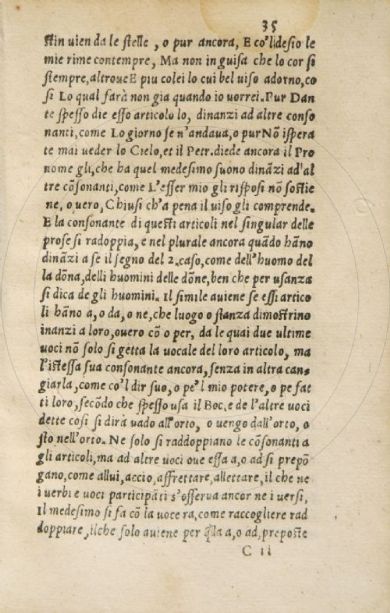 35
stin uien da le stelle, o pur ancora, E co'l desio le
mie rime contempre, Ma non in guisa che lo cor si
stempre, altroue E piu colei lo cui bel uiso adorno, co
si Lo qual farà non gia quando io uorrei. Pur Dan
te spesso die esso articolo lo, dinanzi ad altre conso
nanti, come Lo giorno se n'andaua, o pur Nō ispera
te mai ueder lo Cielo, et il Petr. diede ancora il Pro
nome gli, che ha quel medesimo suono dināzi ad'al
tre cōsonanti, come L'esser mio gli risposi nō sostie
ne, o uero, Chiusi ch'a pena il uiso gli comprende.
E la consonante di questi articoli nel singular delle
prose si radoppia, e nel plurale ancora quādo hāno
dināzi a se il segno del 2. caso, come dell'huomo del
la dōna, delli huomini delle dōne, ben che per usanza
si dica de gli huomini. Il simile auiene se essi artico
li hāno a, o da, o ne, che luogo o stanza dimostrino
inanzi a loro, ouero cō o per, da le quai due ultime
uoci nō solo si getta la uocale del loro articolo, ma
l'istessa sua consonante ancora, senza in altra can
giarla, come co'l dir suo, o pe'l mio potere, o pe fat
ti loro, secōdo che spesso usa il Boc. e de l'altre uoci
dette cosi si dirà uado all'orto, o uengo dall'orto, o
sto nell'orto. Ne solo si raddoppiano le cōsonanti a
gli articoli, ma ad altre uoci oue essa a, o ad si prepō
gano, come allui, accio, affrettare, allettare, il che ne
i uerbi e uoci participāti s'osserua ancor ne i uersi,
Il medesimo si fa cō la uoce ra, come raccogliere rad
doppiare, ilche solo auiene per q̄lla a, o ad, preposte
C ii